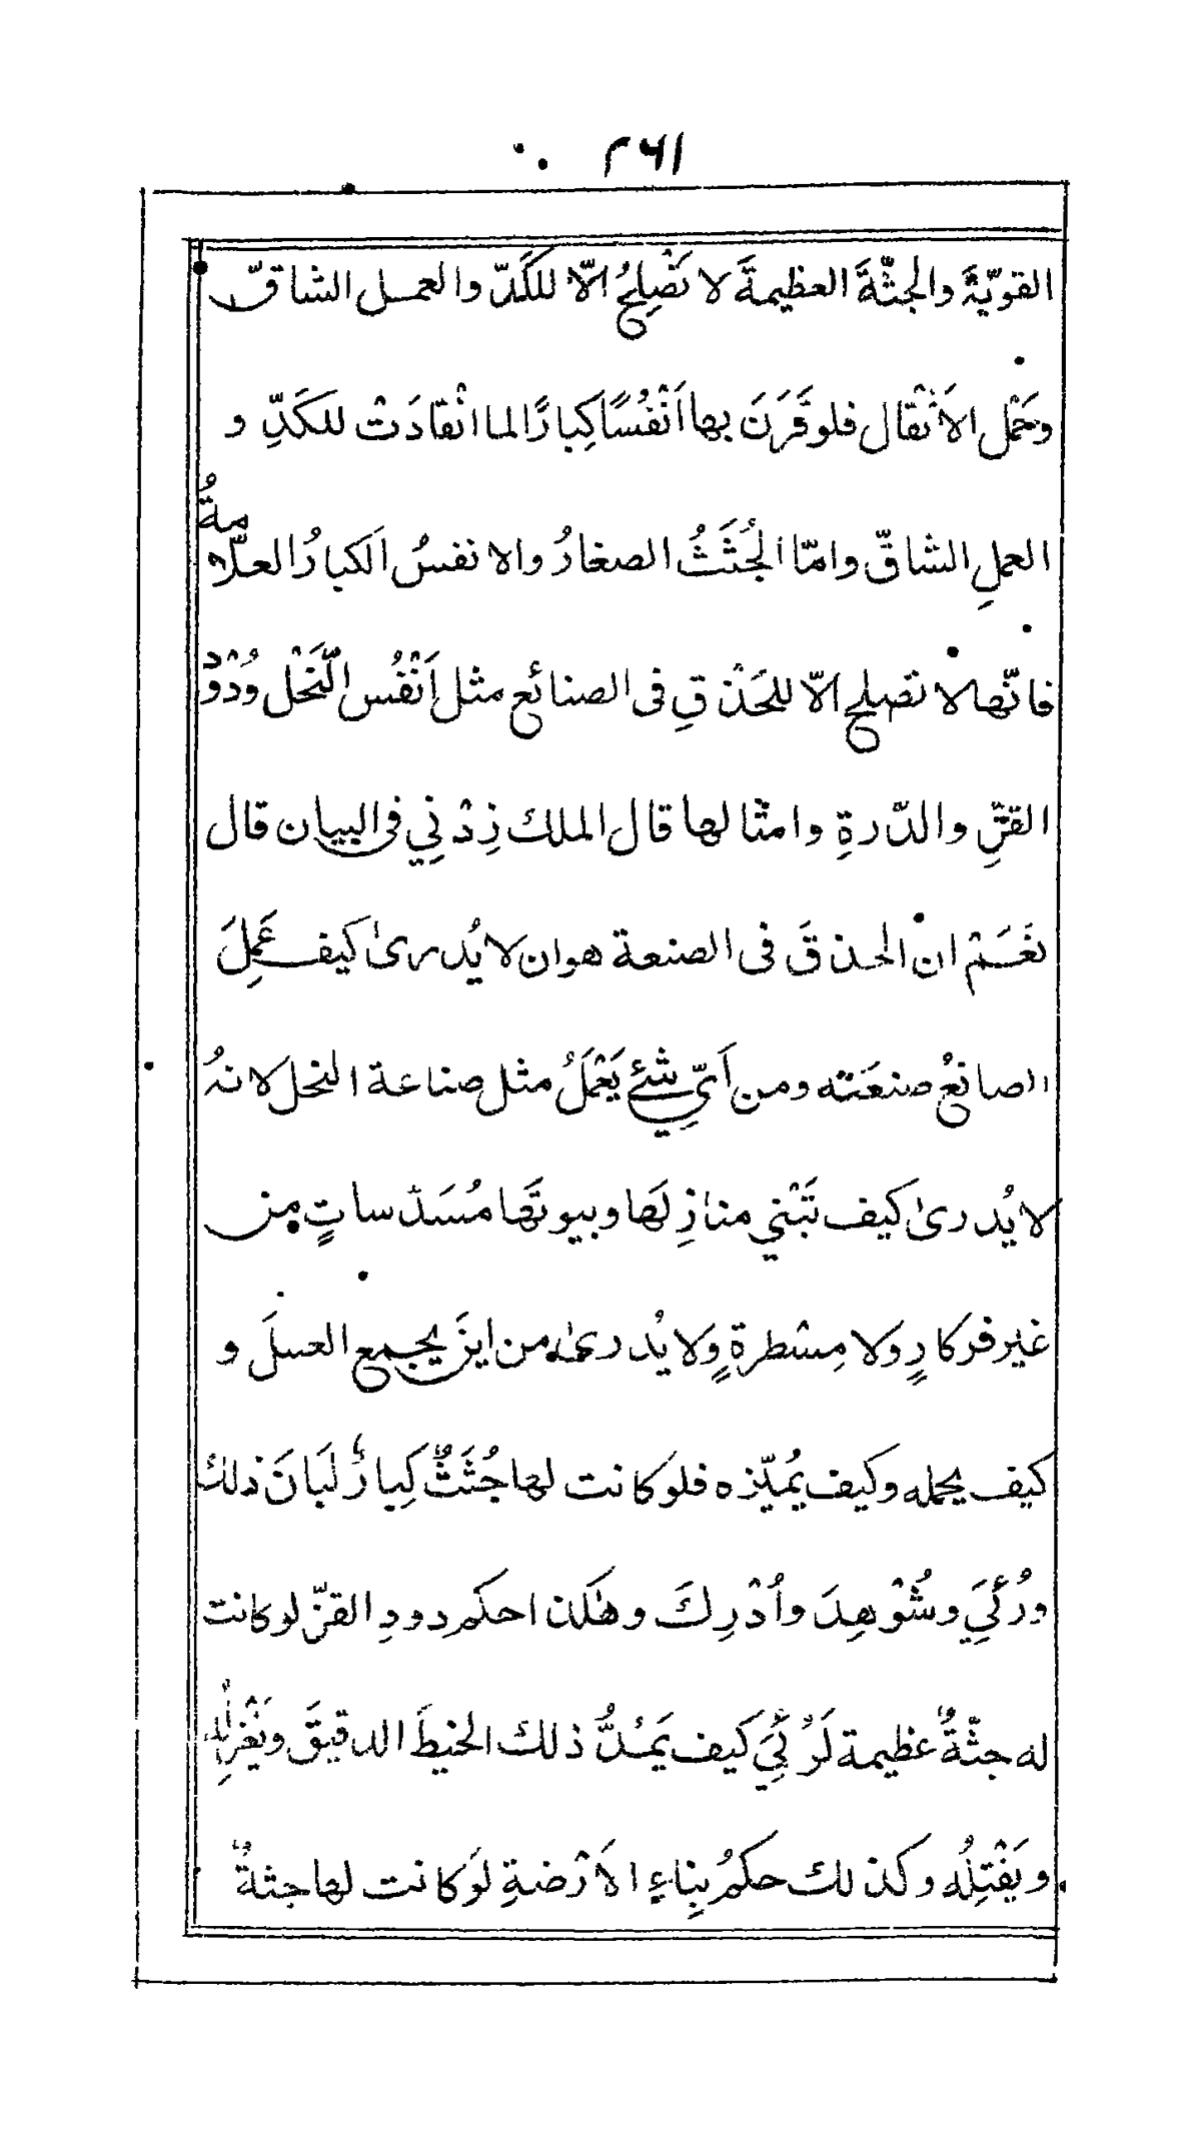 ٢٦١
القويّةَ والجثّةَ العظيمةَ لا تَصْلِحُ الّا للكَدّ والعمل الشاقّ
وحَمْل الاَثْقال فلو قَرَنَ بها اَنْفُسًا كِبارًا لما انْقادَتْ للكَدِّ و
العملِ الشاقّ وامّا الجُثَثُ الصغارُ والانفسُ الكبارُ العلّامةُ
فانّها لا تصلح الّا للحَذْقِ فى الصنائع مثل اَنْفُس النَّحْل ودُوْدِ
القزِّ والدّرةِ وامثالها قال الملك زِدْنِي فى البيان قال
نَعَمْ ان الحذقَ فى الصنعة هو ان لا يُدرىٰ كيف عَمِلَ
الصانعُ صنعَته ومن اَيِّ شئٍ يَعْمَلُ مثل صناعة النحل لانهُ
لا يُدرىٰ كيف تَبْني منازِلَها وبيوتَها مُسَدّساتٍ من
غير فركارٍ ولا مِسْطرةٍ ولا يُدرىٰ من اينَ يجمع العسلَ و
كيف يحمله وكيف يُميّزه فلو كانت لها جُثَثٌ كِبارٌ لَبَانَ ذلك
ورُئِيَ وشُوْهِدَ واُدْرِكَ وهٰكذا حكم دودِ القزّ لو كانت
له جثّةٌ عظيمة لَرُئِيَ كيف يَمُدُّ ذلك الخيطَ الدقيقَ ويَغْزِلُه
ويَفْتِلُه وكذلك حكمُ بِناءِ الاَرْضةِ لَو كانت لها جثةٌ